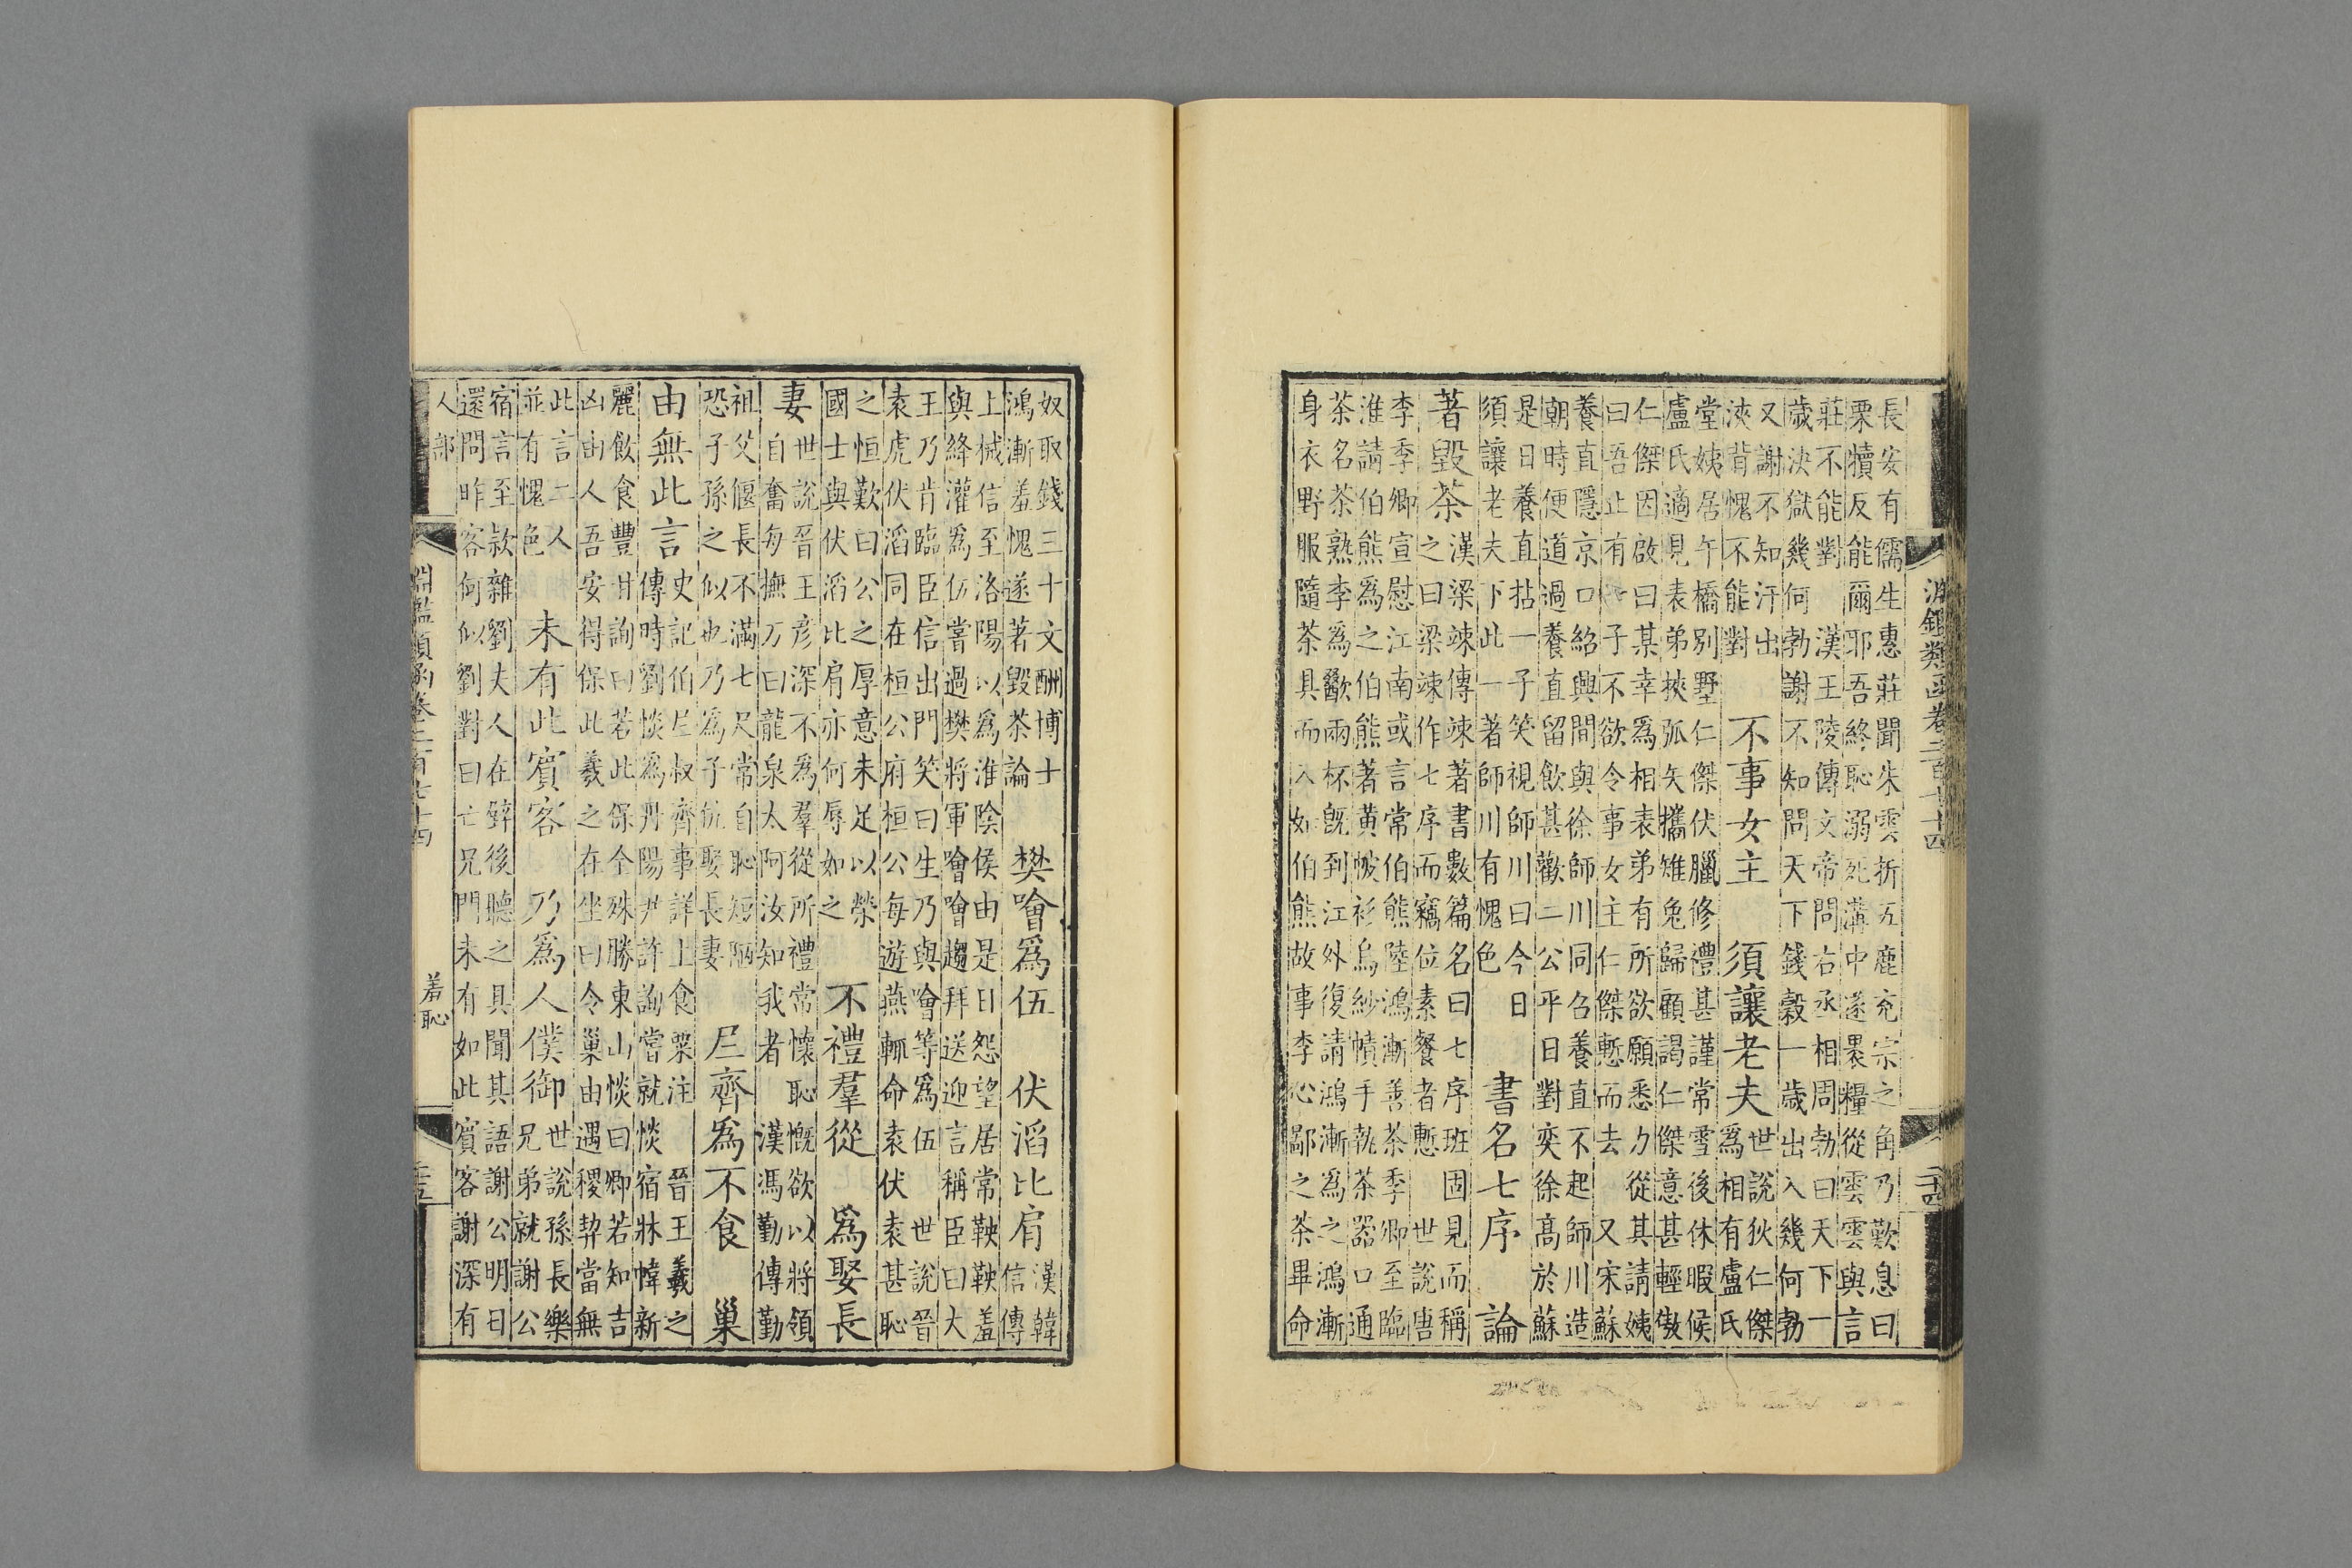 淵鑑類函卷二百七十四 二十四
長安有儒生惠莊聞朱雲折五鹿充宗之角乃歎息曰
栗犢反能爾耶吾終恥溺死溝中遂裹糧從雲雲與言
莊不能對 漢王陵傳文帝問右丞相周勃曰天下一
歲決獄幾何勃謝不知問天下錢穀一歲出入幾何勃
又謝不知汗出
浹背愧不能對 不事女主 須讓老夫 世說狄仁傑
爲相有盧氏
堂姨居午橋別墅仁傑伏臘修禮甚謹常雪後休暇候
盧氏適見表弟挾弧矢攜雉兔歸顧謁仁傑意甚輕傲
仁傑因啟曰某幸爲相表弟有所欲願悉力從其請姨
曰吾止有一子不欲令事女主仁傑慙而去 又宋蘇
養直隱京口紹興間與徐師川同召養直不起師川造
朝時便道過養直留飲甚歡二公平日對奕徐高於蘇
是日養直拈一子笑視師川曰今日
須讓老夫下此一著師川有愧色 書名七序 論
著毀茶 漢梁竦傳竦著書數篇名曰七序班固見而稱
之曰梁竦作七序而竊位素餐者慙 世說唐
李季卿宣慰江南或言常伯熊陸鴻漸善茶季卿至臨
淮請伯熊爲之伯熊著黃帔衫烏紗幘手執茶器口通
茶名茶熟李爲歠兩杯既到江外復請鴻漸爲之鴻漸
身衣野服隨茶具而入如伯熊故事李心鄙之茶畢命
奴取錢三十文酬博士
鴻漸羞愧遂著毀茶論 樊噲爲伍 伏滔比肩 漢韓
信傳
上械信至洛陽以爲淮陰侯由是日怨望居常鞅鞅羞
與絳灌爲伍嘗過樊將軍噲噲趨拜送迎言稱臣曰大
王乃肯臨臣信出門笑曰生乃與噲等爲伍 世說晉
袁虎伏滔同在桓公府桓公每遊燕輒命袁伏袁甚恥
之恒歎曰公之厚意未足以榮
國士與伏滔比肩亦何辱如之 不禮羣從 爲娶長
妻 世說晉王彥深不爲羣從所禮常懷恥慨欲以將領
自奮每撫刀曰龍泉太阿汝知我者 漢馮勤傳勤
祖父偃長不滿七尺常自恥短陋
恐子孫之似也乃爲子伉娶長妻 𡰥齊爲不食 巢
由無此言 史記伯𡰥叔齊事詳上食粟注 晉王羲之
傳時劉惔爲丹陽尹許詢嘗就惔宿牀幃新
麗飲食豐甘詢曰若此保全殊勝東山惔曰卿若知吉
凶由人吾安得保此羲之在坐曰令巢由遇稷契當無
此言二人
並有愧色 未有此賓客 乃爲人僕御 世說孫長樂
兄弟就謝公
宿言至款雜劉夫人在壁後聽之具聞其語謝公明日
還問昨客何似劉對曰亡兄門未有如此賓客謝深有
人部 淵鑑類函卷二百七十四 羞恥 二十五